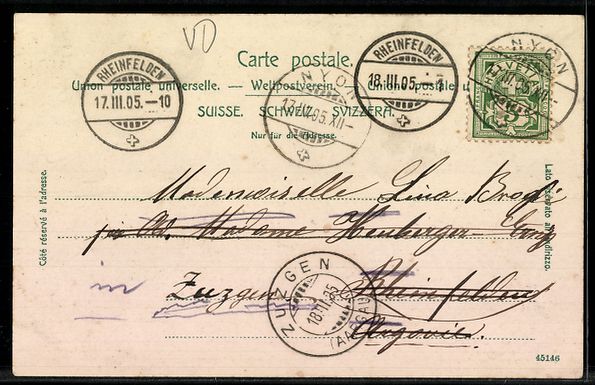 VD
Carte postale.
Union postale universelle. — Weltpostverein. — Union postale u
SUISSE. SCHWEIZ. SVIZZERA.
Nur für die Adresse.
RHEINFELDEN
17.III.05.-10
NYON
17.III.05.XII-
RHEINFELDEN
18.III.05.-7
NYON
Côté réservé à l'adresse.
Lato riservato all'indirizzo.
Mademoiselle Lina
Madame Heuberger
in Zuzgen Rheinfelden
Argovie.
ZUZGEN
18.III.05
(AARGAU)
45146